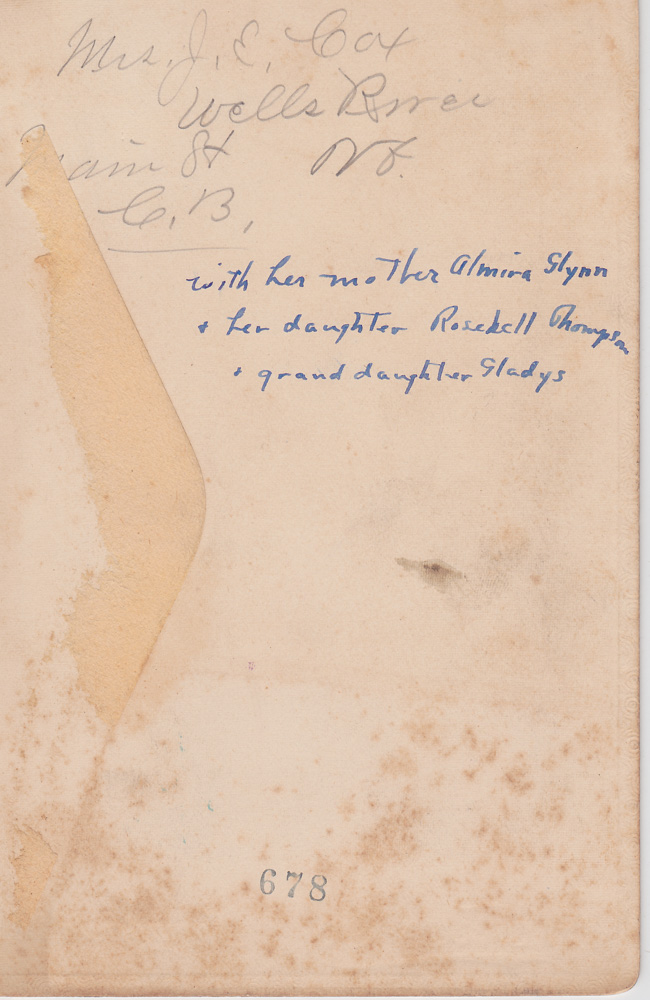 Mrs. J. E. Cox
Wells River
Main St Vt.
C. B.
with her mother Almira Glynn
+ her daughter Rosebell Thompson
+ grand daughter Gladys
678